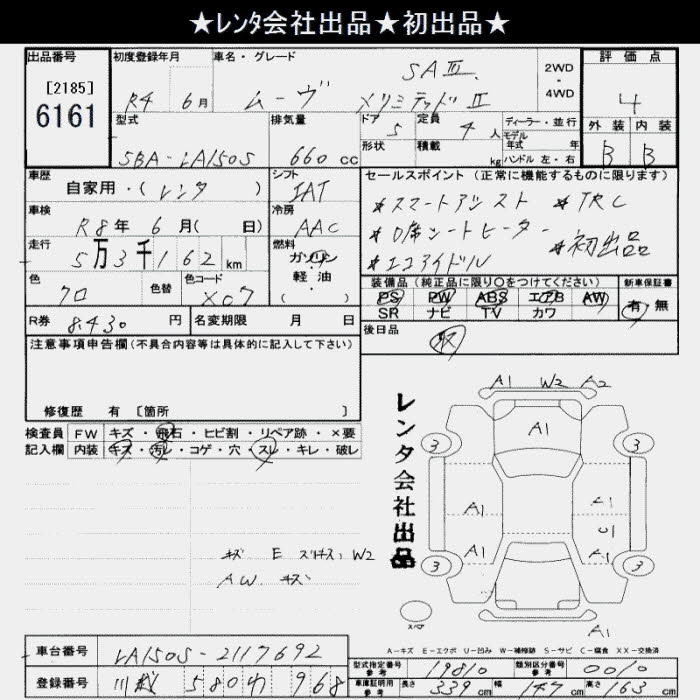 ★レンタ会社出品★初出品★
出品番号 初度登録年月 車名・グレード 評価点
[2185] SAⅢ 2WD・4WD
6161 R4 6月 ムーヴ Xリミテッド Ⅱ 4
型式 排気量 ドア 定員 ディーラー・並行 外装 内装
5 4人 モデル年式 年
5BA-LA150S 660cc 形状 積載 kg ハンドル 左・右 B B
車歴 シフト セールスポイント (正常に機能するものに限ります)
自家用・(レンタ) IAT *スマートアシスト *TRC
車検 冷房
R8年 6月( 日) AAC *D席シートヒーター
走行 燃料 *エコアイドル *初出品
5万3千162km ガソリン
色 色替 色コード 軽油 装備品(純正品に限り○をつけてください) 新車保証書
クロ X07 ・( ) PS PW ABS エアB AW 有・無
SR ナビ TV カワ
R券 8,430円 名変期限 月 日 後日品
注意事項申告欄(不具合内容等は具体的に記入して下さい) 取
修復歴 有 〔箇所 〕
検査員 FW キズ・飛石・ヒビ割・リペア跡・×要
記入欄 内装 キズ・汚レ・コゲ・穴・スレ・キレ・破レ
レンタ会社出品
A1 W2 A2
A1
3 3
A1 A1
U1
A1 A1
3 3
A1
スペア
キズ E W2
AW キズ
A-キズ E-エクボ U-凹み W-補修跡 S-サビ C-腐食 XX-交換済
車台番号 LA150S-2117692
型式指定番号 参考 19810 類別区分番号 参考 0010
登録番号 川越 580 わ 968
車庫証明用 参考 長さ 339cm 幅 147cm 高さ 163cm